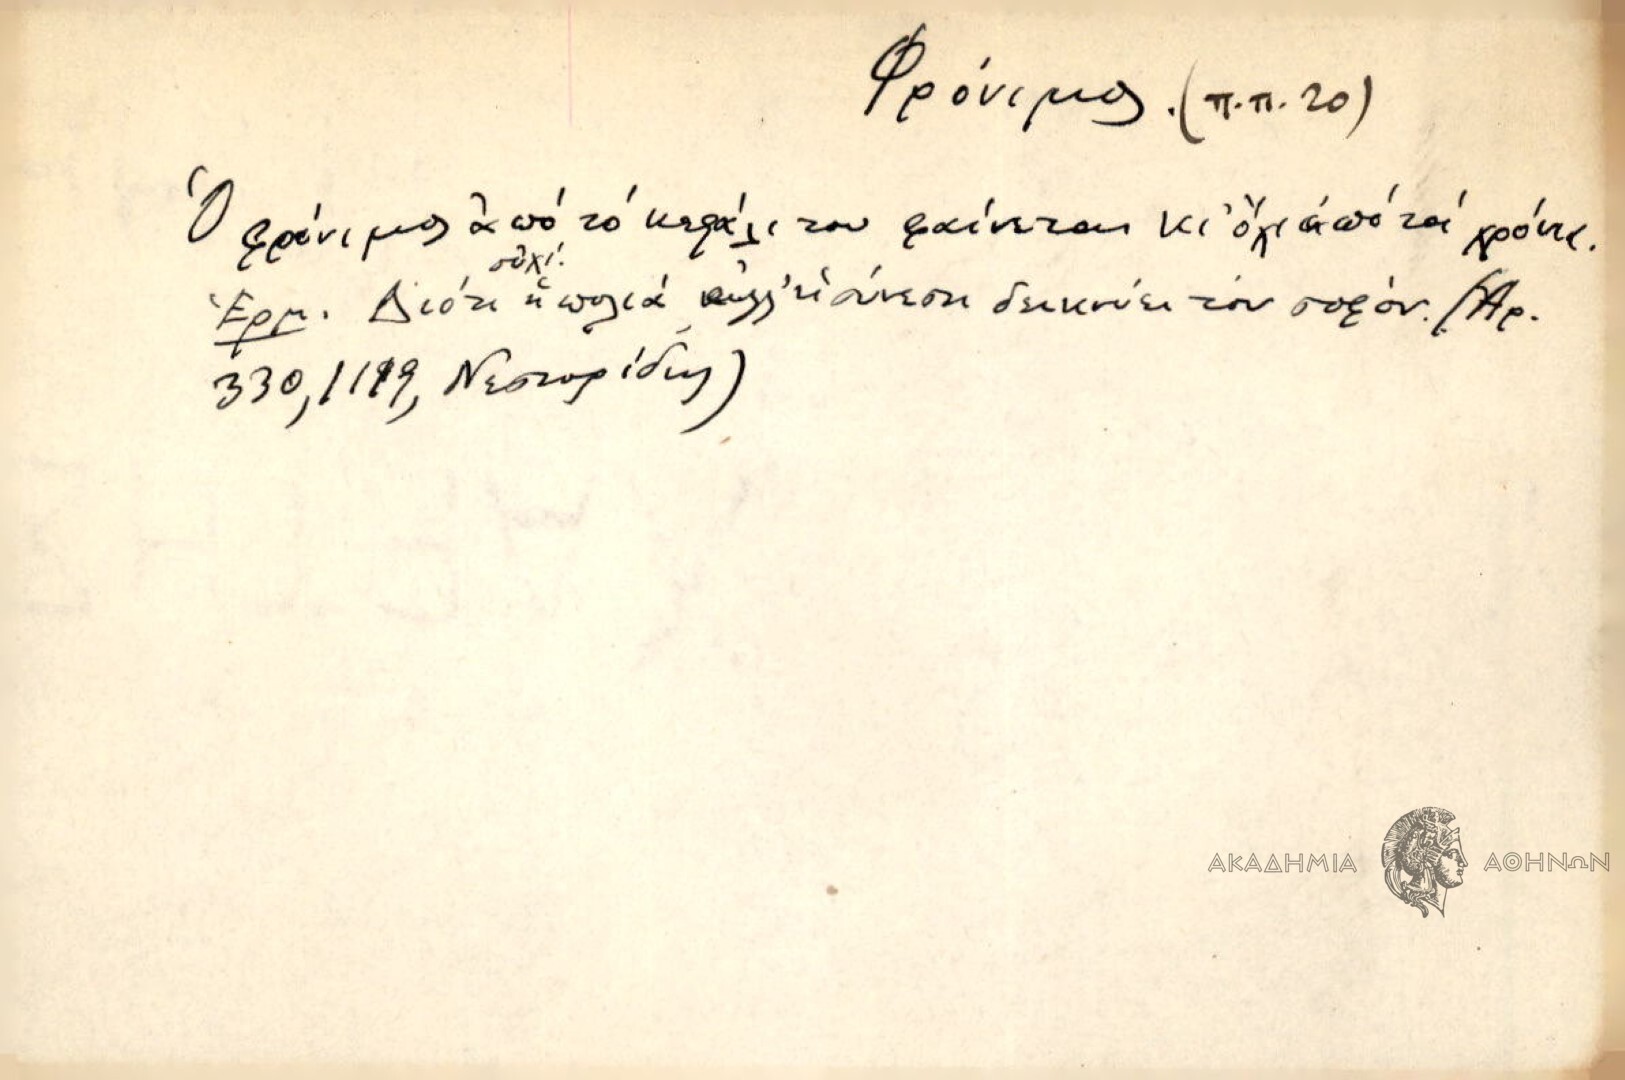 Φρόνιμος. (π.π. 20)
Ὁ φρόνιμος ἀπό τό κεφάλι του φαίνεται κι' ὄχι ἀπό τά χρόνια.
οὐχί
Ἑρμ. Διότι ἡ πολιά ἀλλ' ἡ σύνεσις δεικνύει τόν σοφόν. (Ἀρ.
330, 119, Νεστορίδης)
ΑΚΑΔΗΜΙΑ ΑΘΗΝΩΝ